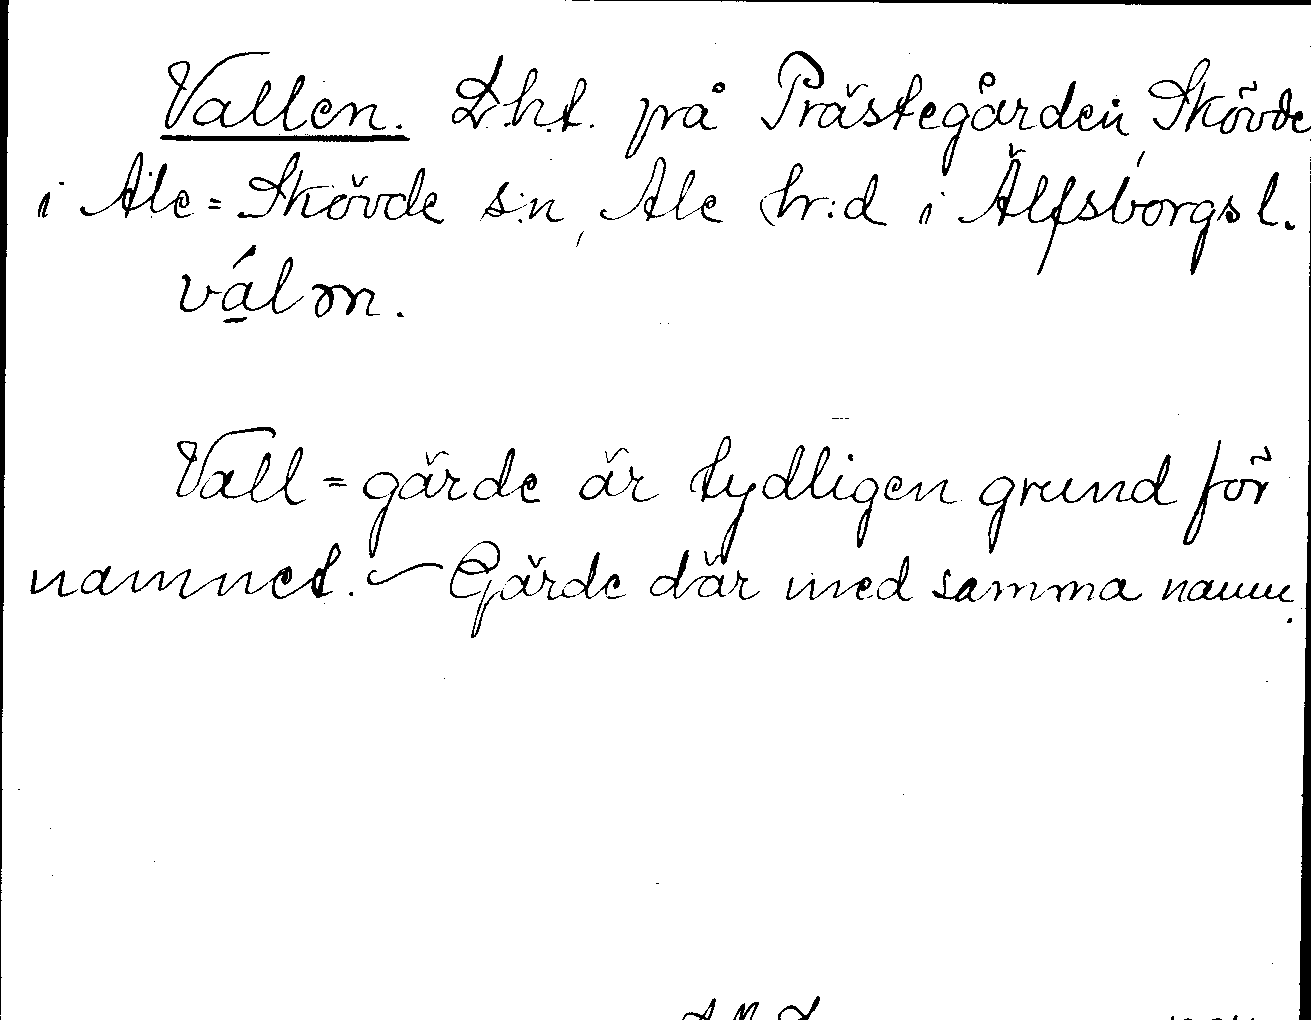 Vallen. Lht. på Prästegården, Skövde
i Ale-Skövde s:n, Ale hr:d i Älfsborgs l.
Vall-gärde är tydligen grund för
namnet. — Gärde där med samma namn.